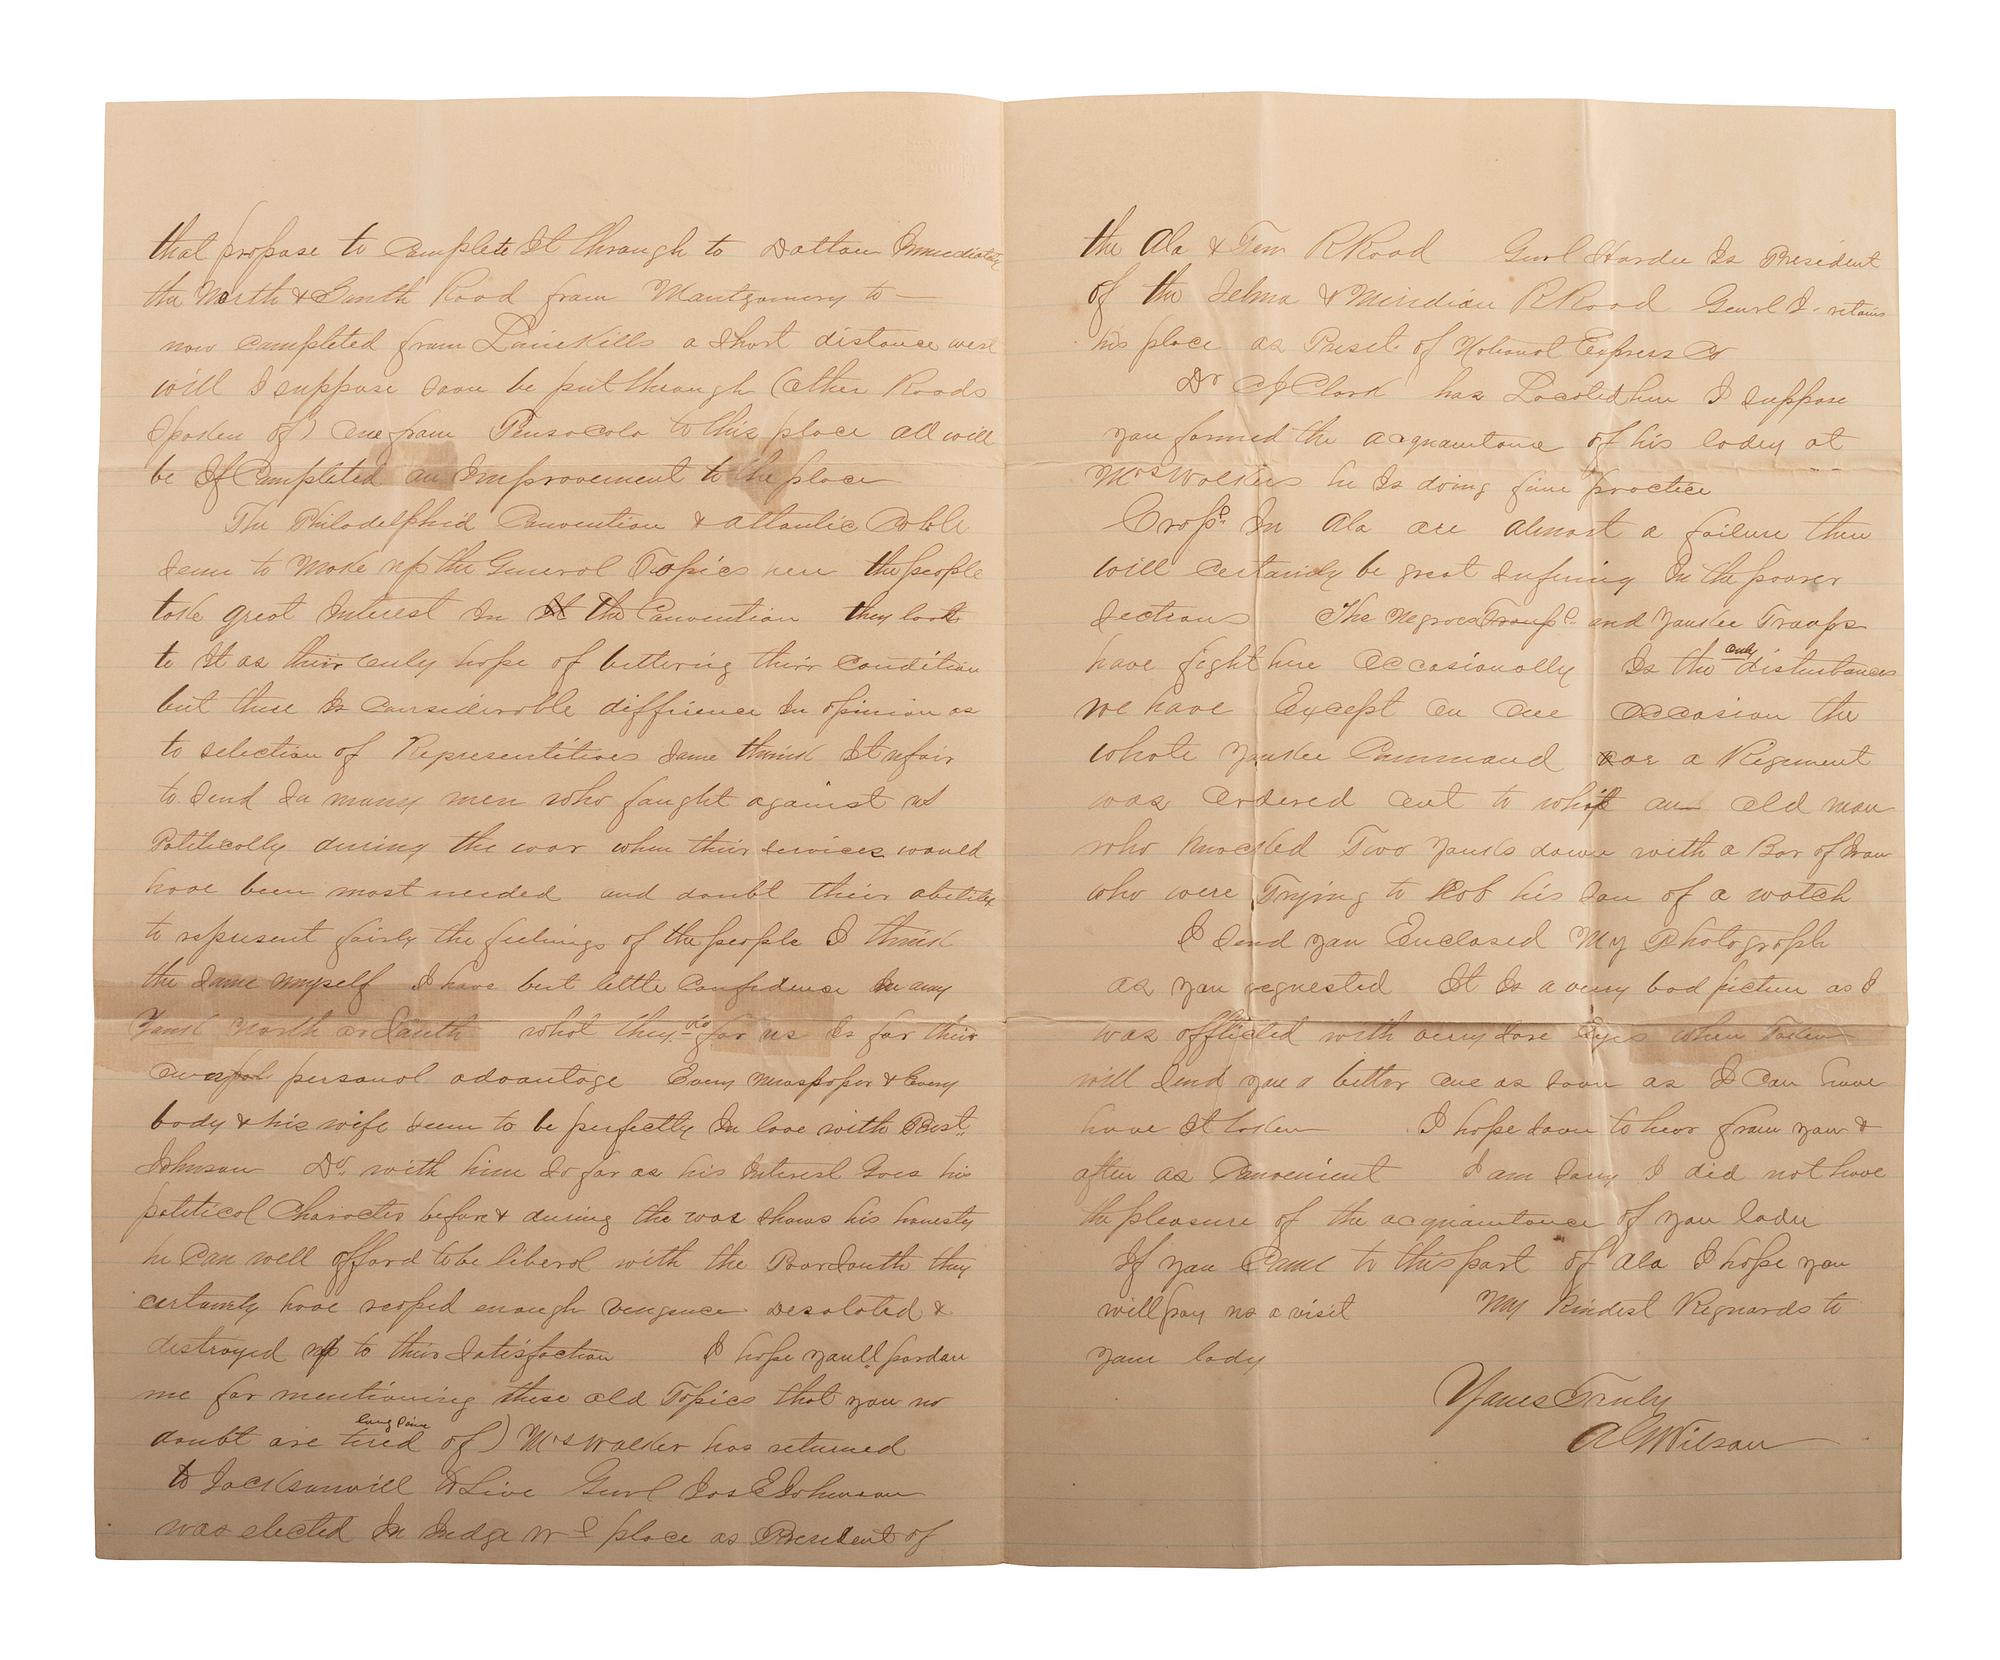 that propose to Complete It through to Dalton Immediately
the North & South Road from Montgomery to —
now completed from Limekills a Short distance west
will I suppose soon be put through (other Roads
Spoken of) One from Pensacola to this place all will
be If Completed an Improvement to the place
The Philadelphia Convention & Atlantic Cable
Seem to Make up the General Topics here the people
take great Interest In It the Convention they look
to It as their only hope of bettering their condition
but there Is Considerable diffrience In opinion as
to selection of Representitives Some think It unfair
to Send So many men who fought against us
Politically during the war when their services would
have been most needed and doubt their abilities
to represent fairly the feelings of the people I think
the Same myself I have but little Confidence In any
Yank North or South what they do for us Is for their
own personal advantage Every newspaper & Every
body & his wife Seem to be perfectly In love with Prest.
Johnson Do. with him So far as his Interest Goes his
political Character before & during the war Shows his honesty
he Can well afford to be liberal with the Poor South they
certainly have reaped enough vengence desolated &
destroyed up to their Satisfaction I hope you'll pardon
me for mentioning these old Topics that you no
doubt are long Since tired of) Mrs Walker has returned
to Jacksonvill to Live Genrl Jos E Johnson
was elected In Judge W s place as President of
the Ala & Tenn R Road Genrl Hardee Is President
of the Selma & Meridian R Road Genrl J. retains
his place as Presdt of National Express Co
Dr C J Clark has Located here I suppose
you formed the acquaintance of his lady at
Mrs Walkers he Is doing fine practice
Crops In Ala are almost a failure there
will certainly be great Sufering In the poorer
Sections The Negroes Troops and Yankee Troops
have fight here occasionally Is the only disturbances
we have Except on one occasion the
whole Yankee Command or a Regiment
was ordered out to whip an old man
who knocked Two Yanks down with a Bar of Iron
who were Trying to Rob his Son of a watch
I Send you Enclosed My Photogroph
as you requested It Is a very bad picture as I
was afflicted with very Sore Eyes when Taken
will Send you a better one as Soon as I Can have
have It taken I hope Soon to hear from you &
often as Convenient I am Sorry I did not have
the pleasure of the acquaintance of you lady
If you Come to this part of Ala I hope you
will pay us a visit My Kindest Reguards to
your lady
Yours Truly
A G Wilson